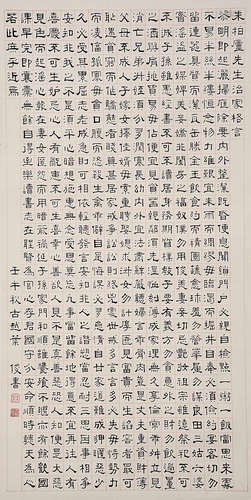 朱柏廬先生治家格言
黎明即起灑掃庭除要內外整潔既昏便息關鎖門戶必親自檢點一粥一飯當思來處
不易半絲半縷恆念物力維艱宜未雨而綢繆毋臨渴而掘井自奉必須儉約宴客切勿
留連器具質而潔瓦缶勝金玉飲食約而精園蔬愈珍饈勿營華屋勿謀良田三姑六婆
實淫盜之媒婢美妾嬌非閨房之福奴僕勿用俊美妻妾切忌豔妝祖宗雖遠祭祀不可
不誠子孫雖愚經書不可不讀居身務期質樸教子要有義方勿貪意外之財勿飲過量
之酒與肩挑貿易毋佔便宜見貧苦親鄰須加溫恤刻薄成家理無久享倫常乖舛立見
消亡兄弟叔姪須分多潤寡長幼內外宜法肅辭嚴聽婦言乖骨肉豈是丈夫重貲財薄
父母不成人子嫁女擇佳婿毋索重聘娶媳求淑女勿計厚奩見富貴而生諂容者最可恥遇
貧窮而作驕態者賤莫甚居家戒爭訟訟則終凶處世戒多言言多必失毋恃勢力
而凌逼孤寡毋貪口腹而恣殺生禽乖僻自是悔誤必多頹惰自甘家道難成狎昵惡少
久必受其累屈志老成急則可相依輕聽發言安知非人之譖訴當忍耐三思因事相爭
安知非我之不是須平心暗想施惠無念受恩莫忘凡事當留餘地得意不宜再往人有
喜慶不可生妒忌心人有禍患不可生喜幸心善欲人見不是真善惡恐人知便是大惡
見色而起淫心報在妻女匿怨而用暗箭禍延子孫家門和順雖饔飧不繼亦有餘歡國
課早完即囊橐無餘自得至樂讀書志在聖賢為官心存君國守分安命順時聽天為人
若此庶乎近焉
壬午秋古越葉俊書